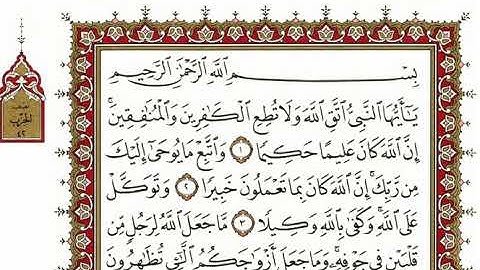 بِسْمِ اللَّهِ الرَّحْمَٰنِ الرَّحِيمِ
يَٰٓأَيُّهَا النَّبِيُّ اتَّقِ اللَّهَ وَلَا تُطِعِ الْكَٰفِرِينَ وَالْمُنَٰفِقِينَ ۗ
إِنَّ اللَّهَ كَانَ عَلِيمًا حَكِيمًا ١ وَاتَّبِعْ مَا يُوحَىٰٓ إِلَيْكَ
مِن رَّبِّكَ ۚ إِنَّ اللَّهَ كَانَ بِمَا تَعْمَلُونَ خَبِيرًا ٢ وَتَوَكَّلْ
عَلَى اللَّهِ ۚ وَكَفَىٰ بِاللَّهِ وَكِيلًا ٣ مَّا جَعَلَ اللَّهُ لِرَجُلٍ مِّن
قَلْبَيْنِ فِي جَوْفِهِ ۚ وَمَا جَعَلَ أَزْوَٰجَكُمُ الَّٰٓـِٔي تُظَٰهِرُونَ
الحزب
٤٢